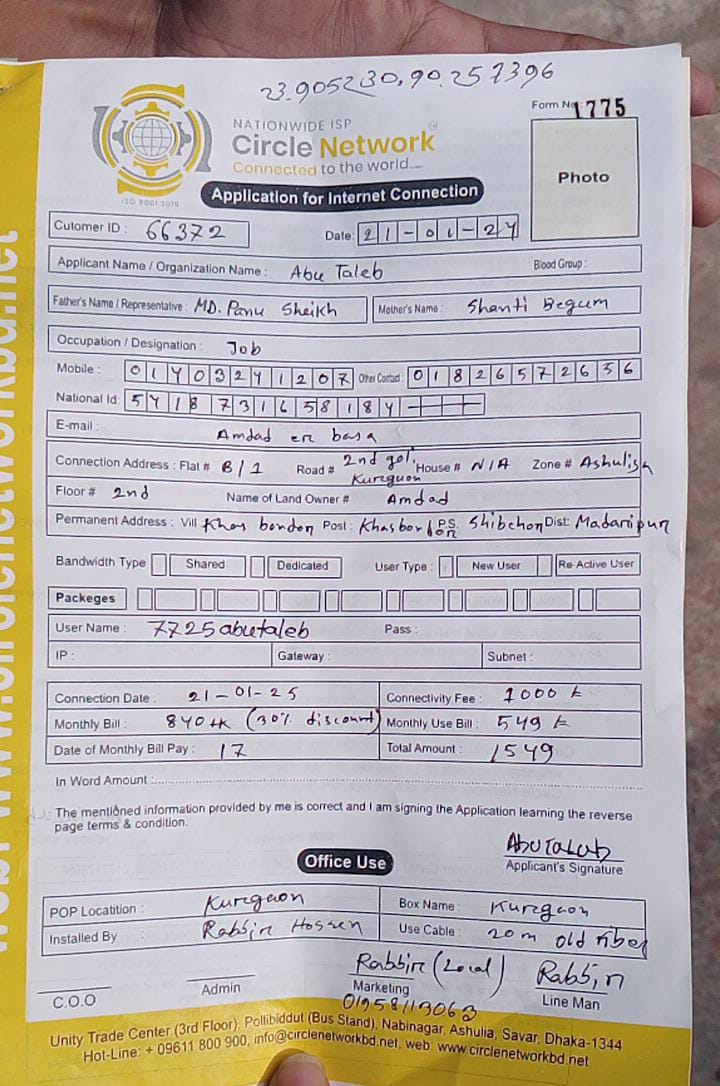 23.905230,90.257396
Form No: 1775
NATIONWIDE ISP
Circle Network
Connected to the world....
ISO 9001:2015
Photo
Application for Internet Connection
Cutomer ID : 66372
Date: 21-01-24
Applicant Name / Organization Name : Abu Taleb Blood Group :
Father's Name / Representative : MD. Panu Sheikh Mother's Name : Shanti Begum
Occupation / Designation : Job
Mobile : 01403241207 Other Contact : 01826572656
National Id: 5418731658184
E-mail :
Amdad er basa
Connection Address : Flat # B/1 Road # 2nd gol. Kurgaon House # N/A Zone # Ashulia
Floor # 2nd Name of Land Owner # Amdad
Permanent Address : Vill Khas bondon Post : P.S. Shibchon Dist: Madaripur
Bandwidth Type Shared Dedicated User Type : New User Re-Active User
Packeges
User Name : 7725abutaleb Pass :
IP : Gateway : Subnet :
Connection Date : 21-01-25 Connectivity Fee : 1000 t
Monthly Bill : 840 tk (30% discount) Monthly Use Bill : 549 t
Date of Monthly Bill Pay : 17 Total Amount : 1549
In Word Amount :
The mentioned information provided by me is correct and I am signing the Application learning the reverse
page terms & condition.
Abu Taleb
Applicant's Signature
Office Use
POP Locatition : Kurgaon Box Name : Kurgaon
Installed By : Rabbir Hossen Use Cable : 20m old fiber
Rabbir (Local) Rabbin
C.O.O Admin Marketing Line Man
01958113063
Unity Trade Center (3rd Floor), Pollibiddut (Bus Stand), Nabinagar, Ashulia, Savar, Dhaka-1344
Hot-Line: + 09611 800 900, info@circlenetworkbd.net, web: www.circlenetworkbd.net